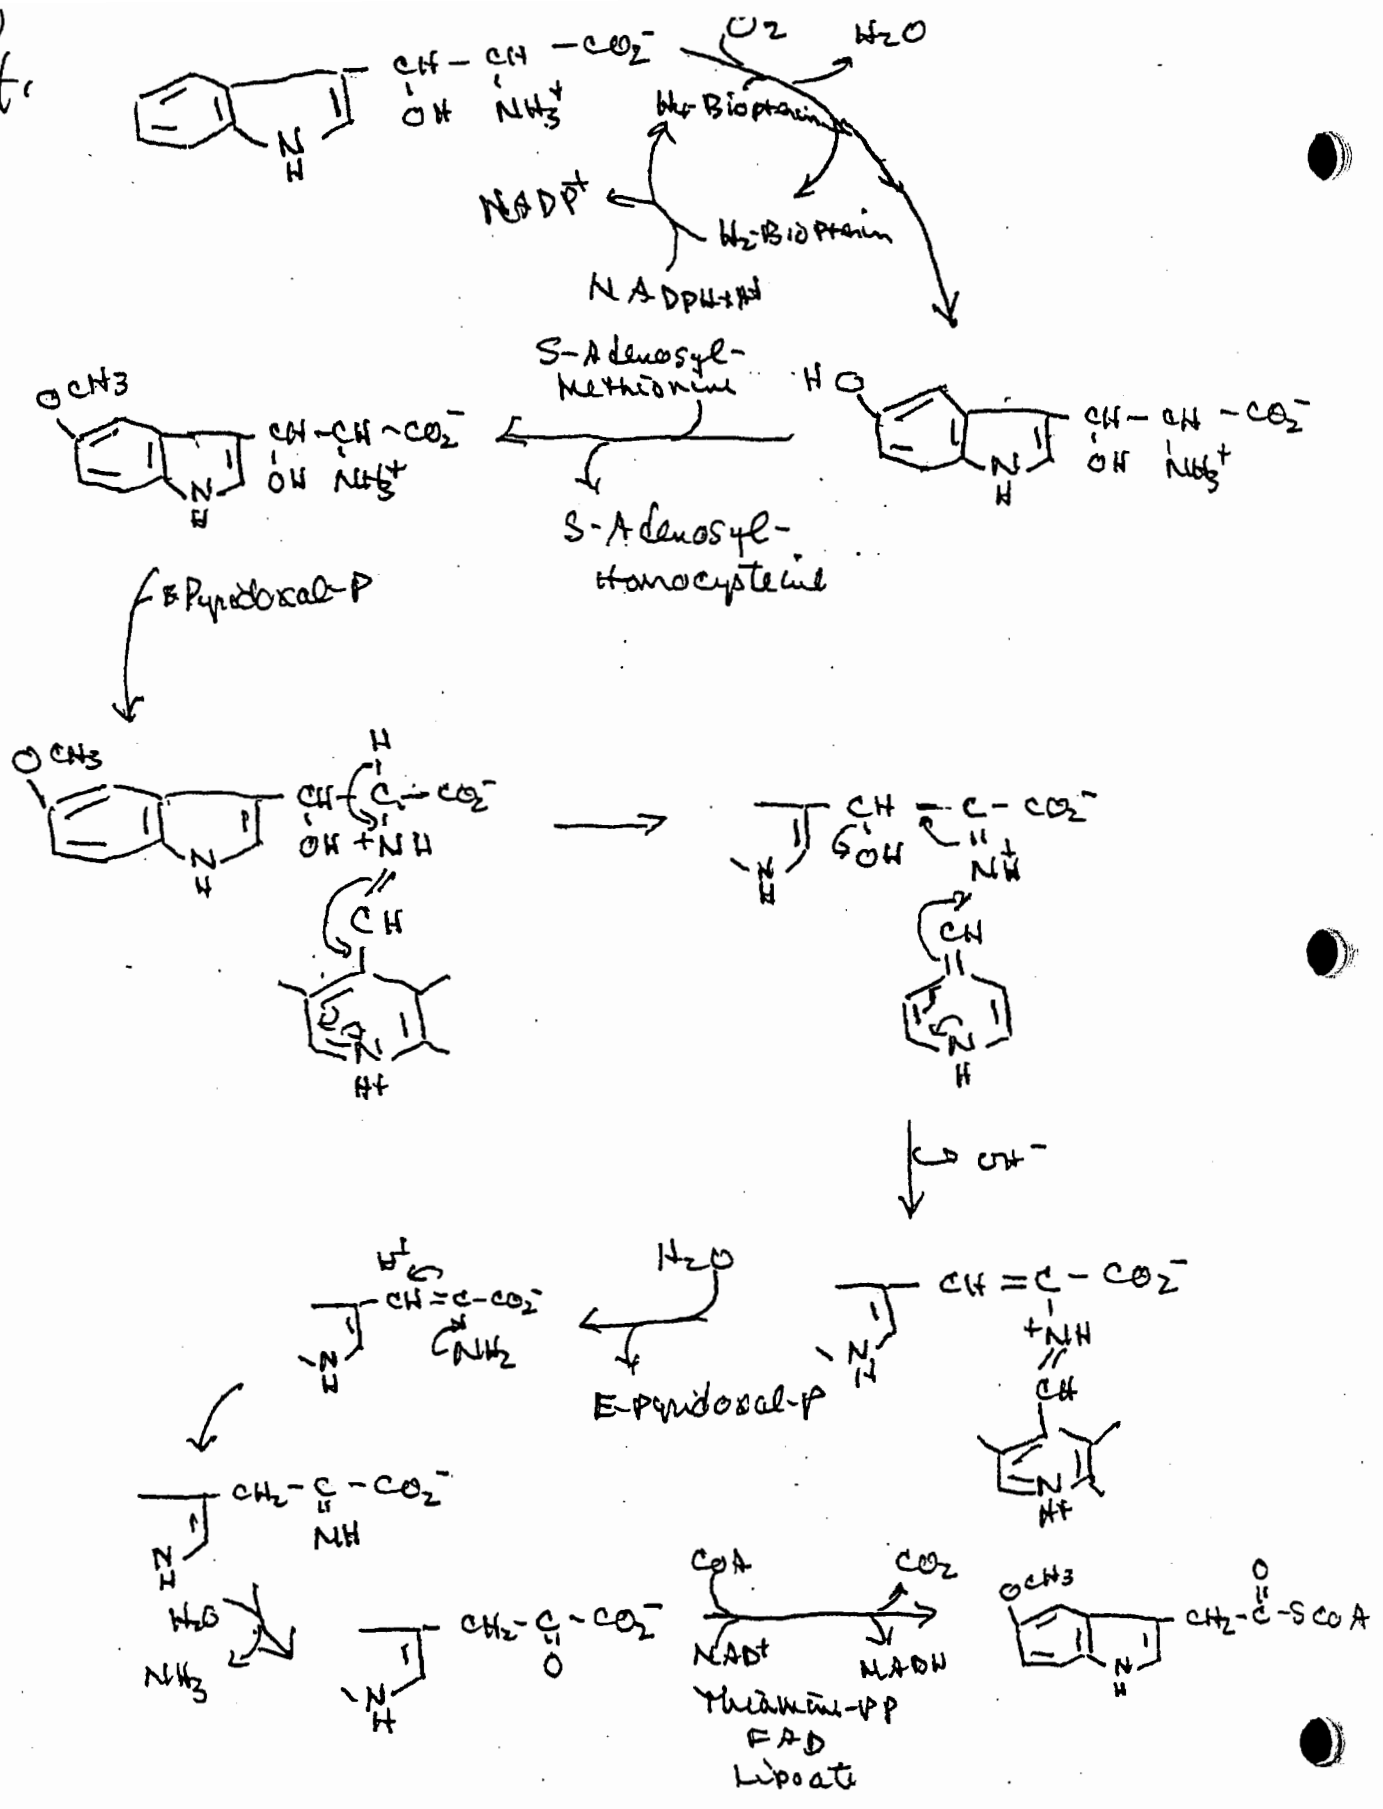 CH – CH – CO₂⁻
OH NH₃⁺
N
H
O₂
H₂O
H₄-Biopterin
NADP⁺
H₂-Biopterin
NADPH+H⁺
S-Adenosyl-
Methionine
S-Adenosyl-
Homocysteine
OCH3
CH – CH – CO₂⁻
OH NH₃⁺
N
H
HO
CH – CH – CO₂⁻
OH NH₃⁺
N
H
Pyridoxal-P
OCH3
H
CH – C – CO₂⁻
OH +NH
N
H
CH
N
H+
CH – C – CO₂⁻
OH NH⁺
N
H
CH
N
H
OH⁻
H⁺
CH = C – CO₂⁻
NH₂
N
H
H₂O
E-Pyridoxal-P
CH = C – CO₂⁻
+NH
N
H
CH
N
H+
CH₂ – C – CO₂⁻
NH
N
H
H₂O
NH₃
CH₂ – C – CO₂⁻
O
N
H
CoA
CO₂
NAD⁺
NADH
Thiamine-PP
FAD
Lipoate
OCH3
O
CH₂ – C – SCoA
N
H